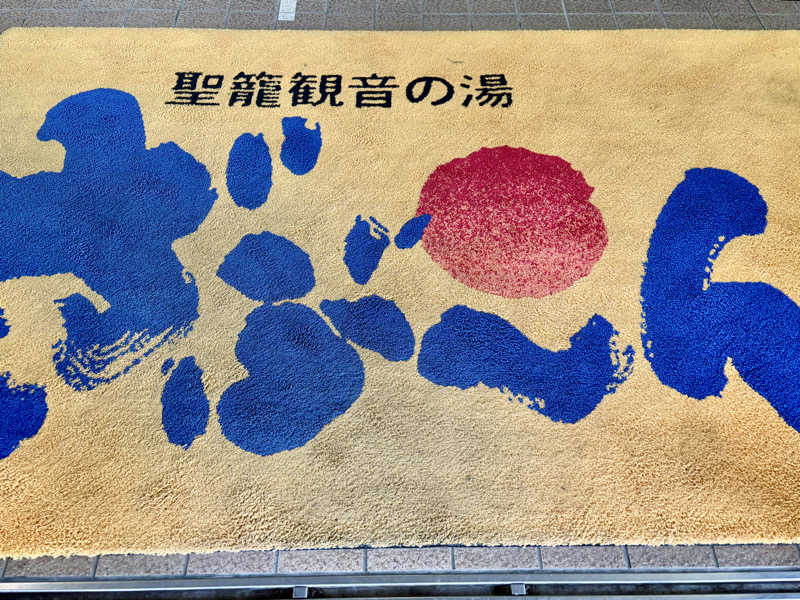 聖籠観音の湯
ざぶーん